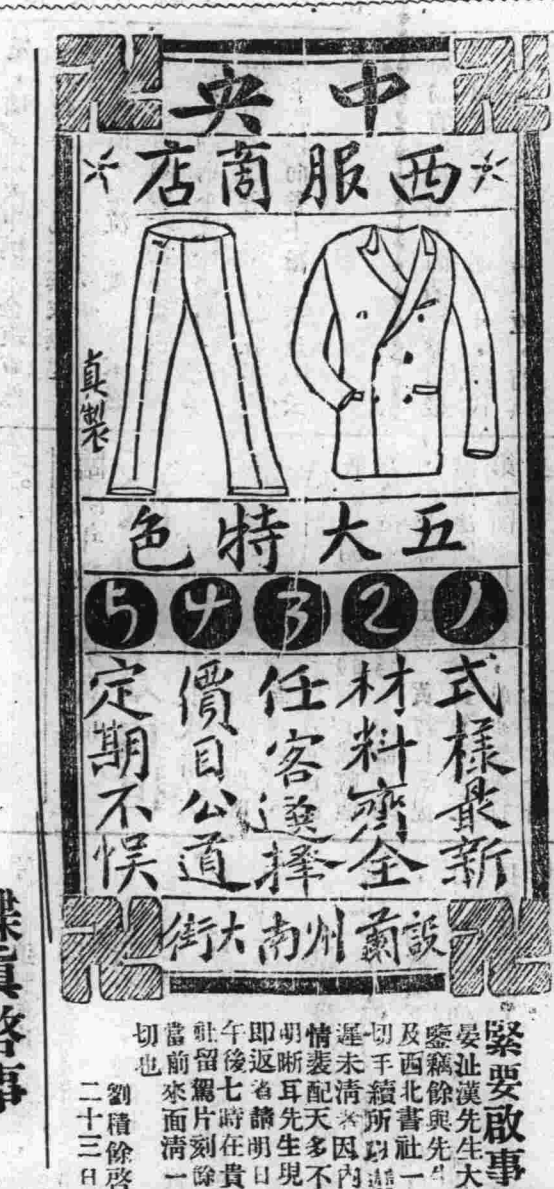 中央
西服商店
真製
五大特色
1 2 3 4 5
式樣最新
材料齊全
任客選擇
價目公道
定期不悞
設蘭州南大街
緊要啟事
晏沚漢先生大
鑒竊餘與先生
及西北書社一
切手續所以遲
遲未清者因內
情裝配天多不
明晰耳先生現
即返省請明日
午後七時在貴
社留駕片刻餘
當前來面清一
切也
劉積餘啓
二十三日
啓事